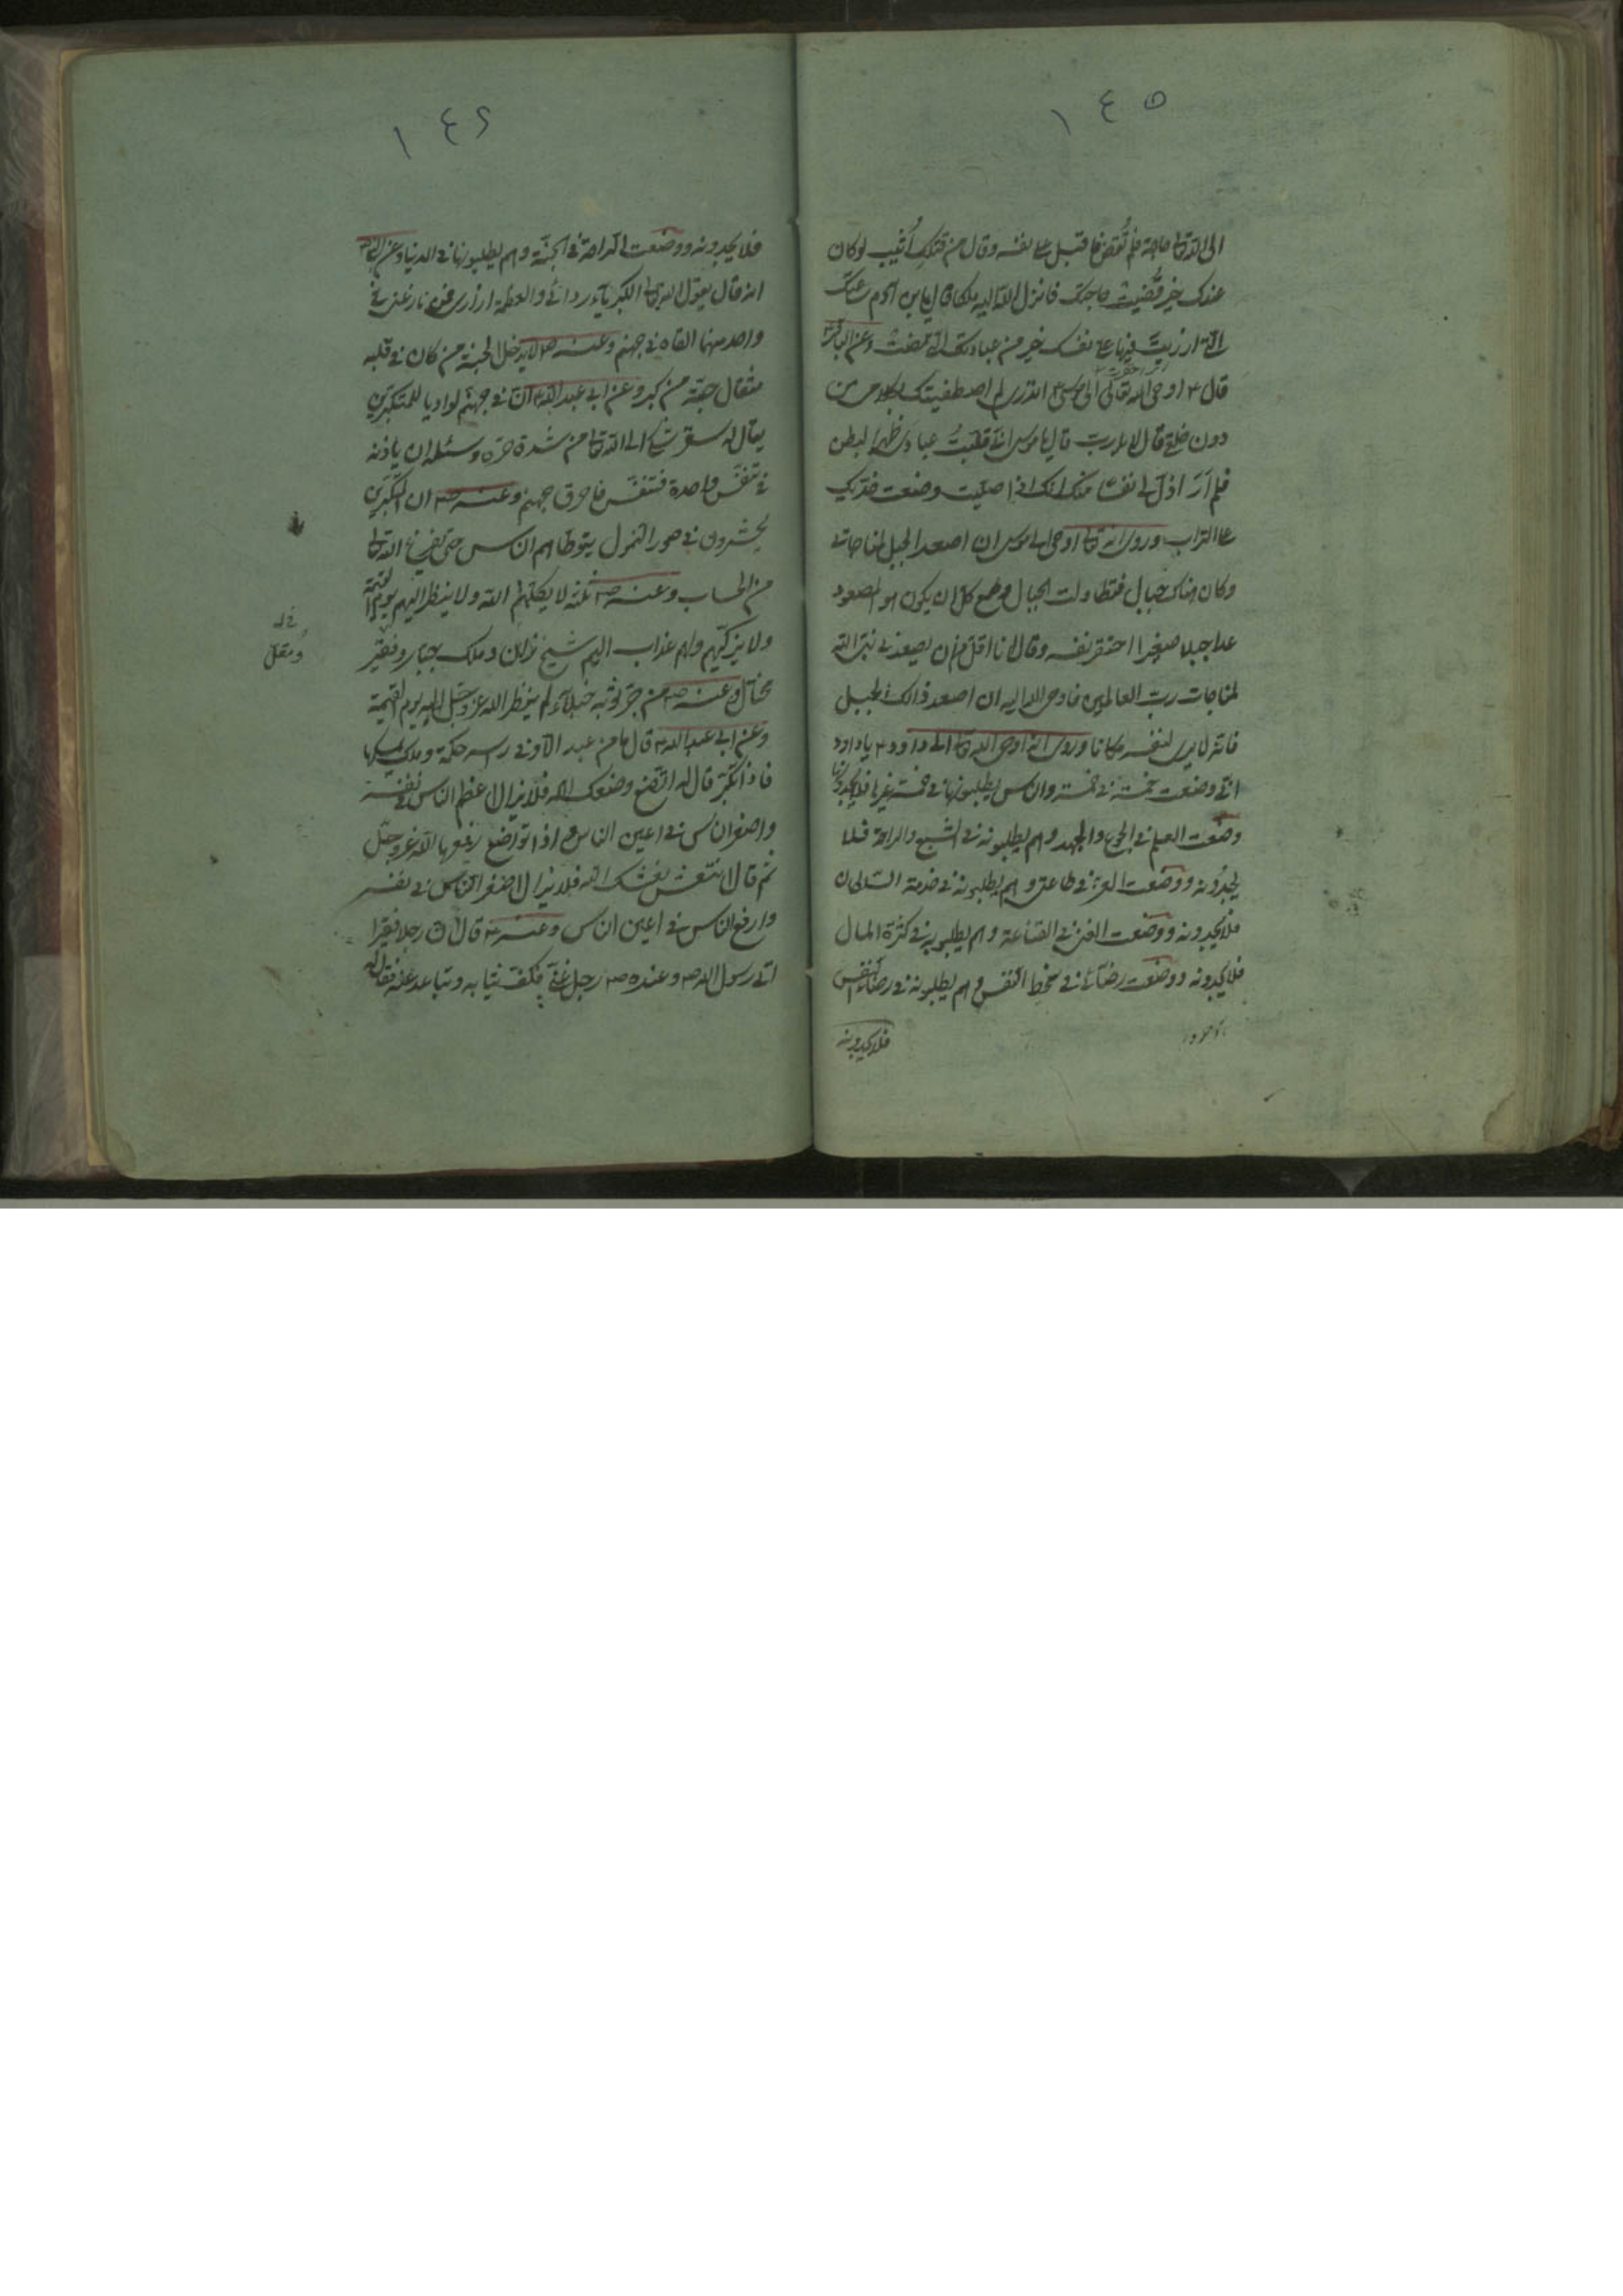 ١٤٥
الى الله تعا حاجة فلم تُقض فاقبل على نفسه وقال من قبلك اُتيت لو كان
عندك خير قُضيت حاجتك فانزل الله اليه ملكا فقال يا بن آدم ساعتك
التي ازريت فيها على نفسك خير من عبادتك التي مضت وعن الباقر ع
قال ع اوحى الله تعالى الى موسى ع اتدرى لم اصطفيتك بكلامى من
دون خلقى قال لا يا رب قال يا موسى انى قلّبتُ عبادى ظهرا لبطن
فلم اَرَ اذلّ لى نفسا منك انك اذا صلّيت وضعت خدّيك
على التراب وروى انه تعا اوحى الى موسى ان اصعد الجبل لمناجاتى
وكان هناك جبال فتطاولت الجبال وطمع كل ان يكون هو المصعود
عدا جبلا صغيرا احتقر نفسه وقال انا اقل من ان يصعدنى نبى الله
لمناجات رب العالمين فاوحى الله اليه ان اصعد ذالك الجبل
فانه لا يرى لنفسه مكانا وروى انه اوحى الله تعا الى داود ع يا داود
انى وضعت خمسة فى خمسة والناس يطلبونها فى خمسة غيرها فلا يجدونها
وضعت العلم فى الجوع والجهد وهم يطلبونه فى الشبع والراحة فلا
يجدونه ووضعت العز فى طاعتى وهم يطلبونه فى خدمة السلطان
فلا يجدونه ووضعت الغنى فى القناعة وهم يطلبونه فى كثرة المال
فلا يجدونه ووضعت رضائى فى سخط النفس وهم يطلبونه فى رضاء النفس
فلا يجدونه
١٤٦
فلا يجدونه ووضعت الراحة فى الجنّة وهم يطلبونها فى الدنيا وعن النبى ص
انه قال يقول الله تعا الكبرياء ردائى والعظمة ازارى فمن نازعنى فى
واحد منهما القاه فى جهنم وعنه ص لا يدخل الجنة من كان فى قلبه
مثقال حبّة من كبر وعن ابى عبد الله ع انّ فى جهنم لواديا للمتكبرين
يقال له سقر شكى الى الله تعا من شدة حرّه وسئله ان ياذن له
فى تنفّس واحدة فتنفّس فاحرق جهنم وعنه ص ان المتكبرين
يحشرون فى صور النمل يتوطاهم الناس حتى يفرغ الله تعا
من الحساب وعنه ص ثلثة لا يكلّمهم الله ولا ينظر اليهم يوم القيمة
ولا يزكّيهم ولهم عذاب اليم شيخ زان وملك جبّار وفقير
مختال وعنه ص من جرّ ثوبه خيلاء لم ينظر الله عز وجل اليه يوم القيمة
وعن ابى عبد الله ع قال ما من عبد الا وفى راسه حكمة وملك يمسكها
فاذا تكبّر قال له اتّضع وضعك الله فلا يزال اعظم الناس فى نفسه
واصغر الناس فى اعين الناس واذا تواضع رفعها الله عز وجل
ثم قال انتعش نعشك الله فلا يزال اصغر الناس فى نفسه
وارفع الناس فى اعين الناس وعنه ع قال ان رجلا فقيرا
اتى رسول الله ص وعنده ص رجل غنى فكفّ ثيابه وتباعد عنه فقال له
ومقل